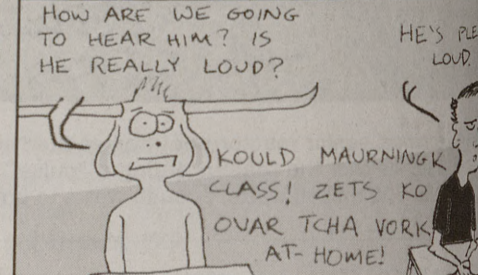 HOW ARE WE GOING
TO HEAR HIM? IS
HE REALLY LOUD?
HE'S PLE
LOUD.
KOULD MAURNINGK
CLASS! ZETS KO
OVAR TCHA VORK
AT-HOME!